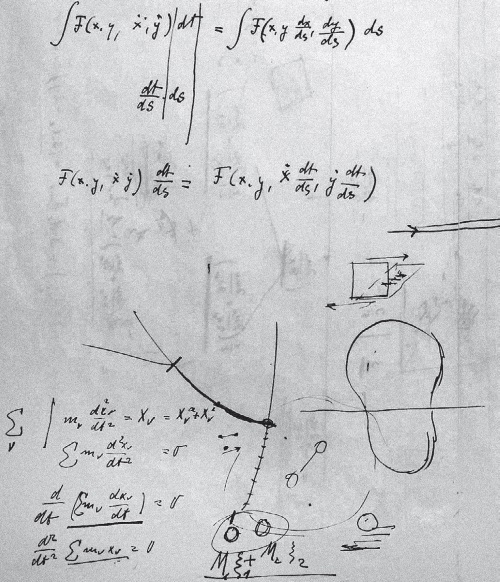 ∫ F(x, y, ẋ, ẏ) dt = ∫ F(x, y dx/ds, dy/ds) ds
dt/ds ds
F(x, y, ẋ ẏ) dt/ds = F(x, y, ẋ dt/ds, ẏ dt/ds)
Σν | mν d²xν/dt² = Xν = Xνᵃ + Xνⁱ
Σ mν d²xν/dt² = 0
d/dt (Σ mν dxν/dt) = 0
d²/dt² Σ mν xν = 0